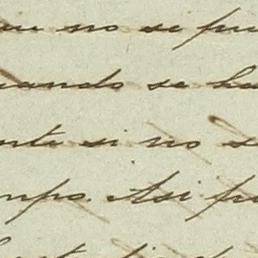 no se pu
uando se ha
nte si no se
mpo. Asi pu